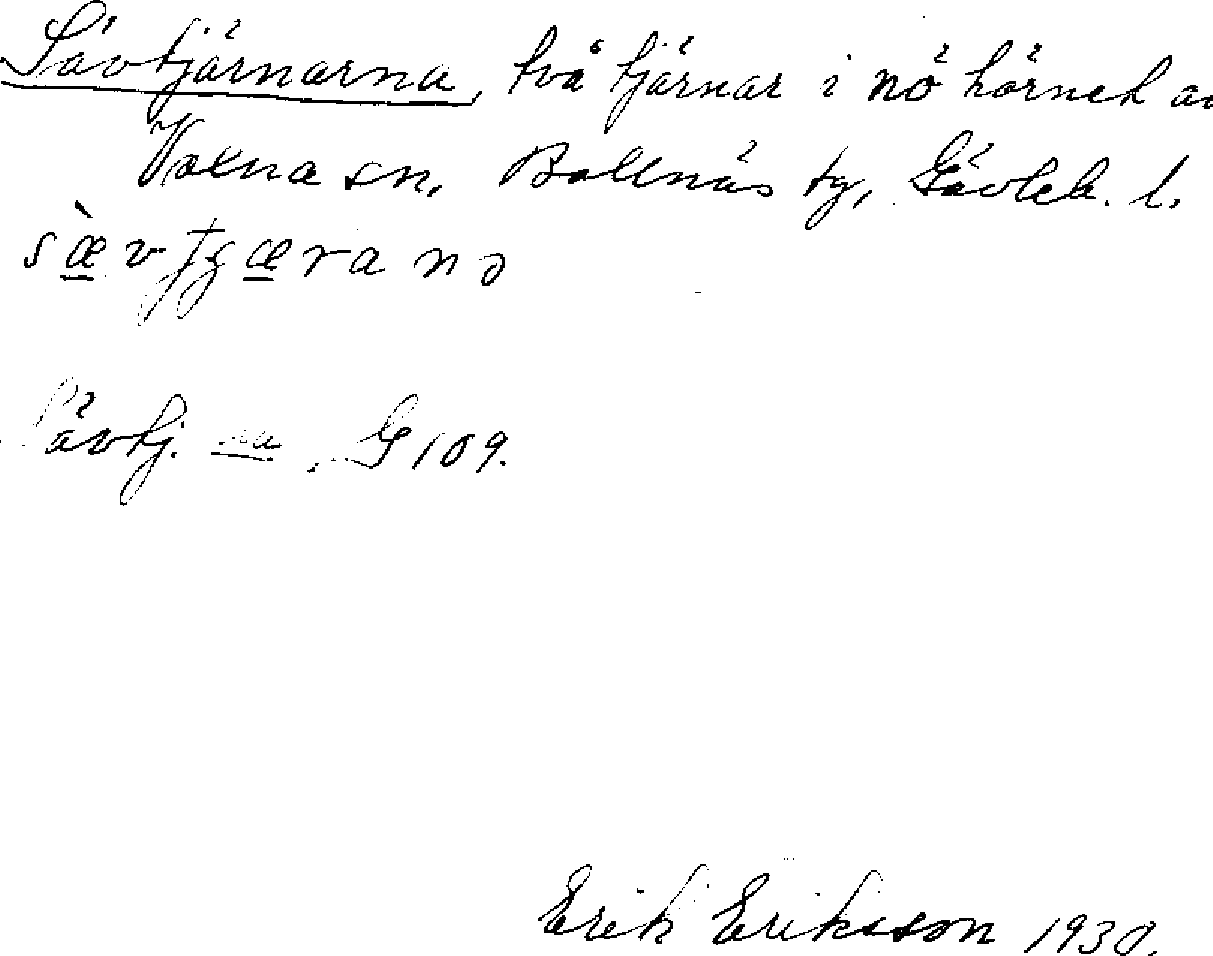 Sävtjärnarna, två tjärnar i nö hörnet av
Voxna sn, Bollnäs tg, Gävleb. l.
sæ̀vtɟæranə
Sävtj. na, G 109.
Erik Eriksson 1930.